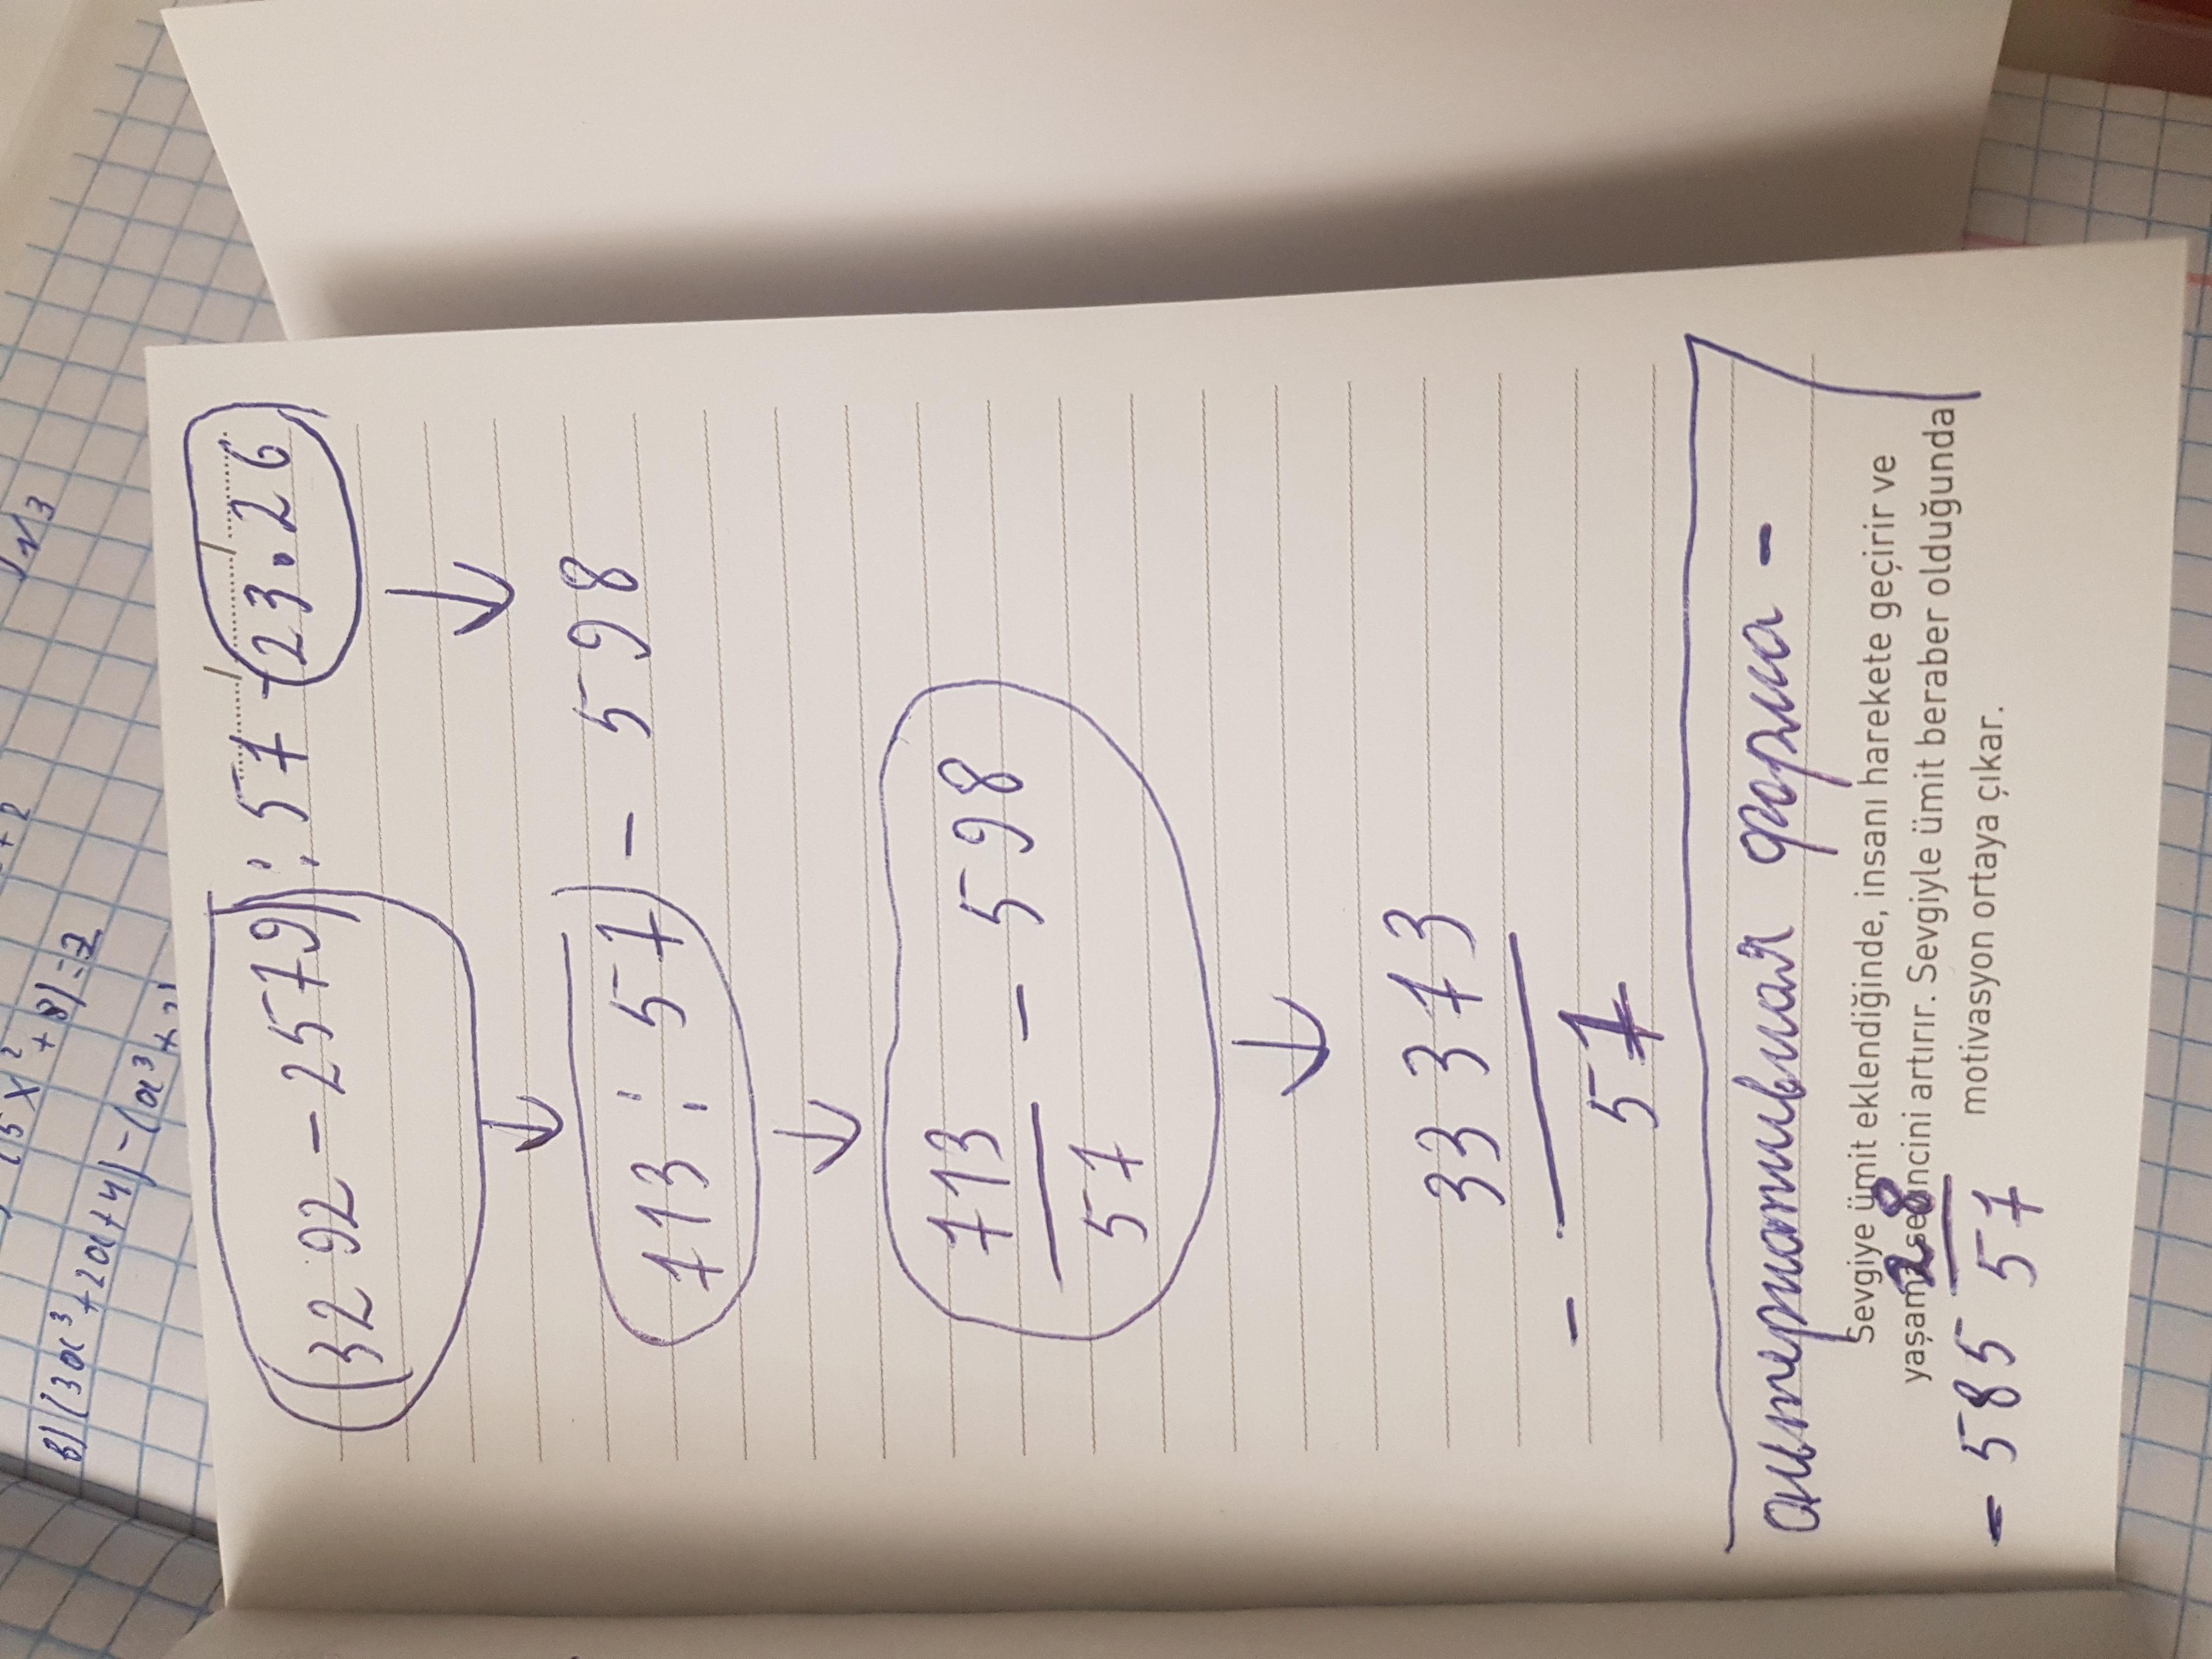 (3292 - 2579) : 57 - 23 . 26
↓ ↓
713 : 57) - 598
↓
713
― - 598
57
↓
33373
- ―
57
альтернативная форма -
Sevgiye ümit eklendiğinde, insanı harekete geçirir ve
yaşama sevincini artırır. Sevgiyle ümit beraber olduğunda
motivasyon ortaya çıkar.
28
- 585 ―
57
в) (3a³+2a+4) - (a³
x² + 8) = 7